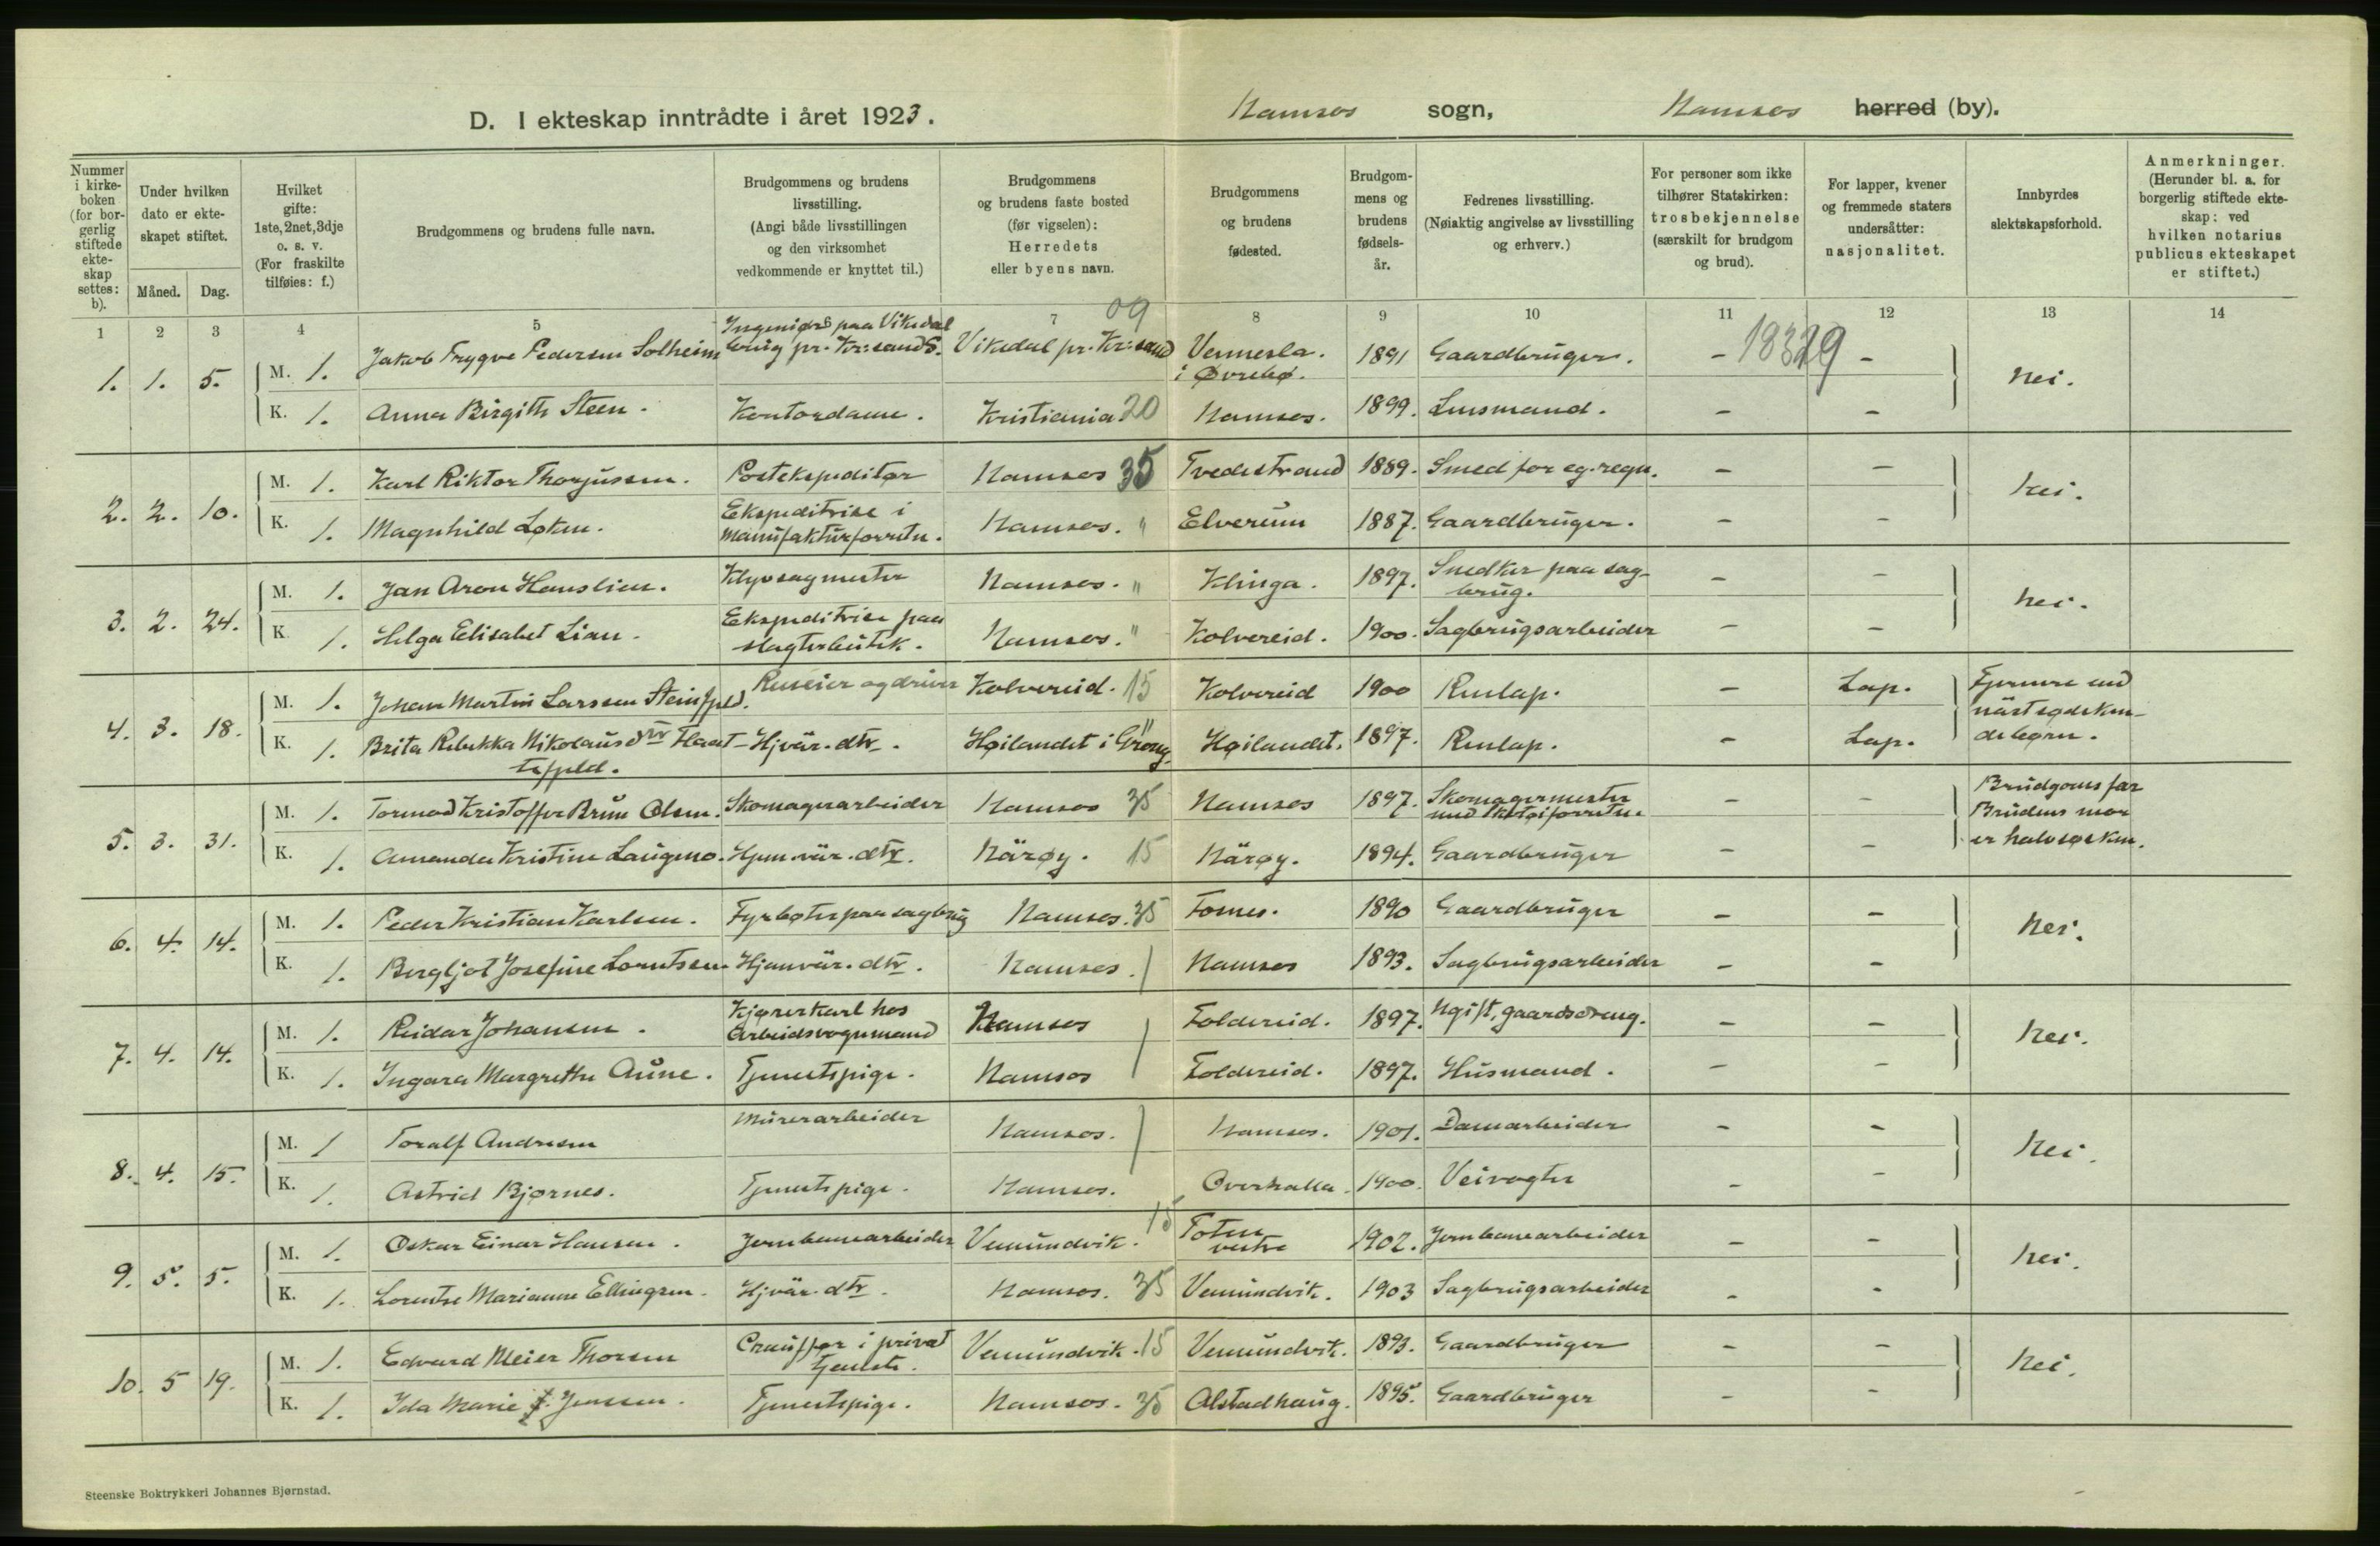 D. I ekteskap inntrådte i året 1923. Namsos sogn, Namsos herred (by).
Nummer i kirke-boken (for bor-gerlig stiftede ekte-skap settes: b).
Under hvilken dato er ekte-skapet stiftet.
Måned. Dag.
Hvilket gifte: 1ste, 2net, 3dje o. s. v. (For fraskilte tilføies: f.)
Brudgommens og brudens fulle navn.
Brudgommens og brudens livsstilling. (Angi både livsstillingen og den virksomhet vedkommende er knyttet til.)
Brudgommens og brudens faste bosted (før vigselen): Herredets eller byens navn.
Brudgommens og brudens fødested.
Brudgom-mens og brudens fødsels-år.
Fedrenes livsstilling. (Nøiaktig angivelse av livsstilling og erhverv.)
For personer som ikke tilhører Statskirken: trosbekjennelse (særskilt for brudgom og brud).
For lapper, kvener og fremmede staters undersåtter: nasjonalitet.
Innbyrdes slektskapsforhold.
Anmerkninger. (Herunder bl. a. for borgerlig stiftede ekte-skap: ved hvilken notarius publicus ekteskapet er stiftet.)
1 2 3 4 5 6 7 8 9 10 11 12 13 14
09
18329
1. 1. 5. M. 1. Jakob Trygve Pedersen Solheim Ingeniør paa Vikedal brug pr. Kr:sand S. Vikedal pr. Kr:sand Vennesla i Øvrebø. 1891 Gaardbruger. - - Nei.
K. 1. Anna Birgith Steen. Kontordame. Kristiania 20 Namsos. 1899. Lensmand. - -
2. 2. 10. M. 1. Karl Riktor Thorjussen. Postekspeditør Namsos 35 Tvedestrand 1889. Smed for eg. regn. - - Nei.
K. 1. Magnhild Løken. Ekspeditrise i Manufakturforretn. Namsos. " Elverum 1887. Gaardbruger. - -
3. 2. 24. M. 1. Jan Aron Hanslien. Klyvsagmester Namsos. " Klinga. 1897. Snedker paa sag-brug. - - Nei.
K. 1. Helga Elisabet Lian. Ekspeditrise paa slagterbutik. Namsos. " Kolvereid. 1900. Sagbrugsarbeider - -
4. 3. 18. M. 1. Johan Martin Larssen Steinfjeld. Reneier og driver Kolvereid. 15 Kolvereid 1900 Renlap. - Lap. Fjernere end näst sødsken-debørn.
K. 1. Brita Rebekka Nikolausdtr Flaat-tefjeld. Hjvär. dtr. Høilandet i Grong. " Høilandet. 1897. Renlap. - Lap.
5. 3. 31. M. 1. Tormod Kristoffer Brun Olsen. Skomagerarbeider Namsos 35 Namsos 1897. Skomagermester med skotøiforretn. - - Brudgoms far Brudens mor er halvsøsken.
K. 1. Amanda Kristine Laugeno. Hjem.vär. dtr. Närøy. 15 Närøy. 1894. Gaardbruger - -
6. 4. 14. M. 1. Peder Kristian Karlsen. Fyrbøter paa sagbrug Namsos. 35 Fosnes. 1890 Gaardbruger - - Nei.
K. 1. Bergljot Josefine Lorntsen Hjemvär. dtr. Namsos. Namsos 1893. Sagbrugsarbeider - -
7. 4. 14. M. 1. Reidar Johansen. Kjørerkarl hos Arbeidsvognmand Namsos Foldereid. 1897. Ugift, gaardsdreng. - - Nei.
K. 1. Ingara Margrethe Aune. Tjenestepige. Namsos Foldereid. 1897. Husmand. - -
8. 4. 15. M. 1 Toralf Andresen Murerarbeider Namsos. Namsos. 1901. Damarbeider - - Nei.
K. 1. Astrid Bjørnes. Tjenestepige. Namsos. Overhalla. 1900. Veivogter - -
9. 5. 5. M. 1. Oskar Einar Hansen. Jernbanearbeider Vemundvik. 15 Toten vestre 1902. Jernbanearbeider - - Nei.
K. 1. Lorentse Marianne Ellingsen. Hjvär. dtr. Namsos. 35 Vemundvik. 1903 Sagbrugsarbeider - -
10. 5 19. M. 1. Edvard Meier Thorsen Chauffør i privat tjeneste. Vemundvik. 15 Vemundvik. 1893. Gaardbruger - - Nei.
K. 1. Ida Marie J. Jenssen. Tjenestepige. Namsos. 35 Alstadhaug. 1895. Gaardbruger - -
Steenske Boktrykkeri Johannes Bjørnstad.